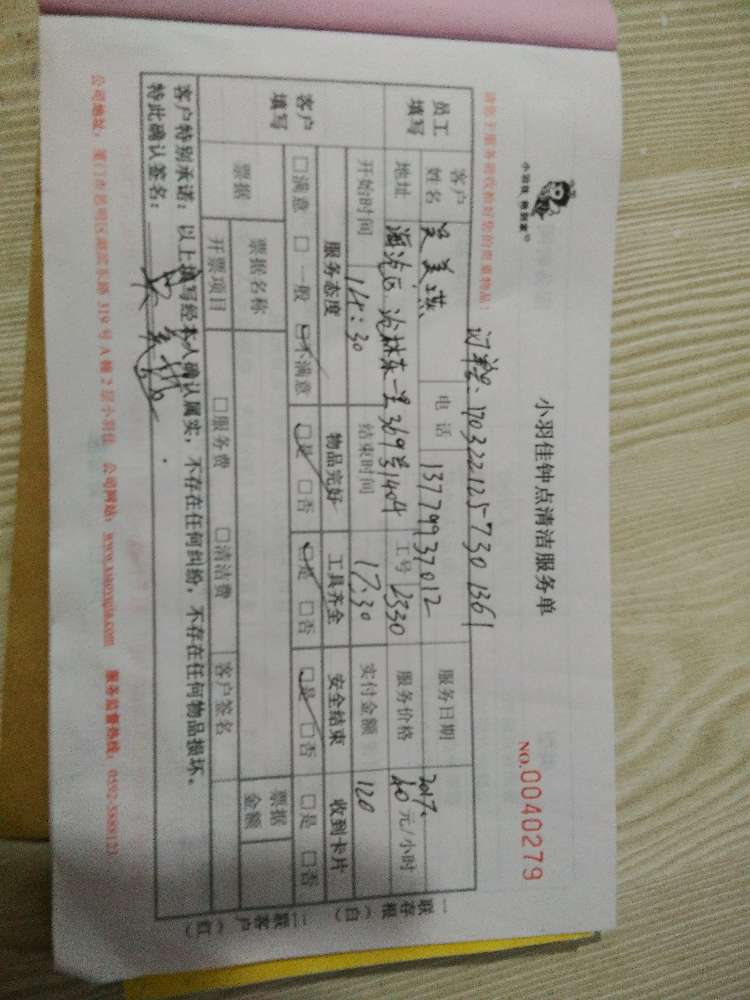 小羽佳 给到家
小羽佳钟点清洁服务单
NO.0040279
请您于服务前收检好您的贵重物品!
订单: 703221257301361
员工填写 客户姓名 吴美燕 电话 13779937012 服务日期 2017.
地址 海沧区沧林东一里369号1404 工号 2330 服务价格 40元/小时
开始时间 14:30 结束时间 17:30 实付金额 120
客户填写 服务态度 物品完好 工具齐全 安全结束 收到卡片
□满意 □一般 □不满意 □是 □否 □是 □否 □是 □否 □是 □否
票据 票据名称 票据金额
开票项目 □服务费 □清洁费 客户签名
客户特别承诺:以上填写经本人确认属实,不存在任何纠纷,不存在任何物品损坏。
特此确认签名:吴美燕
公司地址:厦门市思明区湖滨东路319号A幢2层小羽佳 公司网站:www.xiaoyujia.com 服务监督热线:0592-5888121
一联存根(白)
二联客户(红)